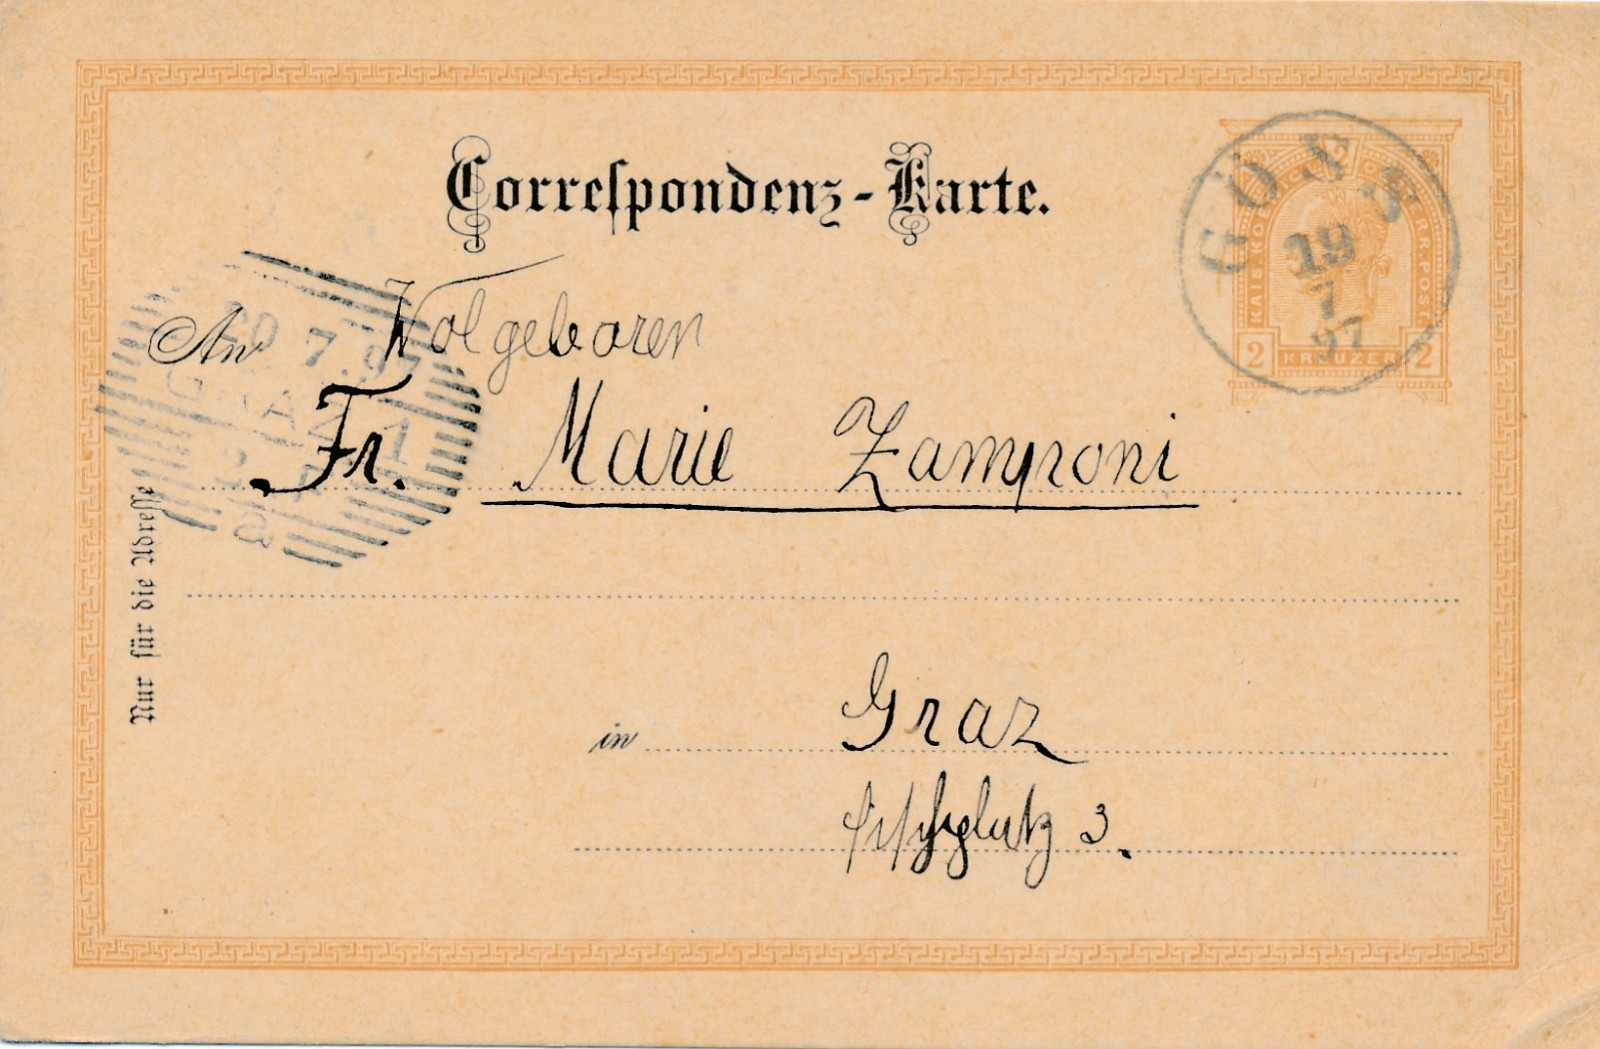 Correspondenz-Karte.
GÖSS
19
7
97
KAIS. KOENIGL. OESTERR. POST.
2 KREUZER 2
20 7.97
GRAZ 1
An Wolgeboren
Fr. Marie Zamponi
in Graz
3.
Nur für die Adresse